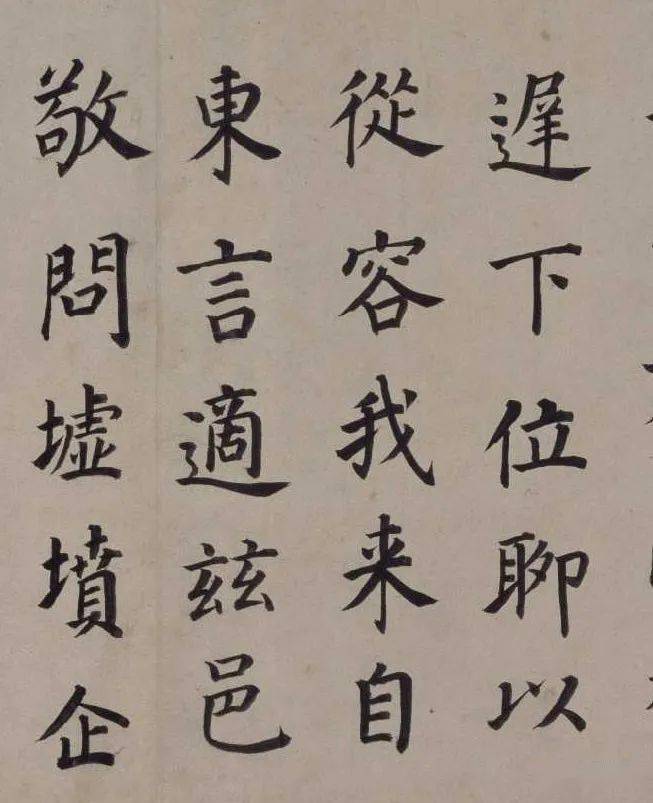 遲下位聊以
從容我来自
東言適茲邑
敬問墟墳企